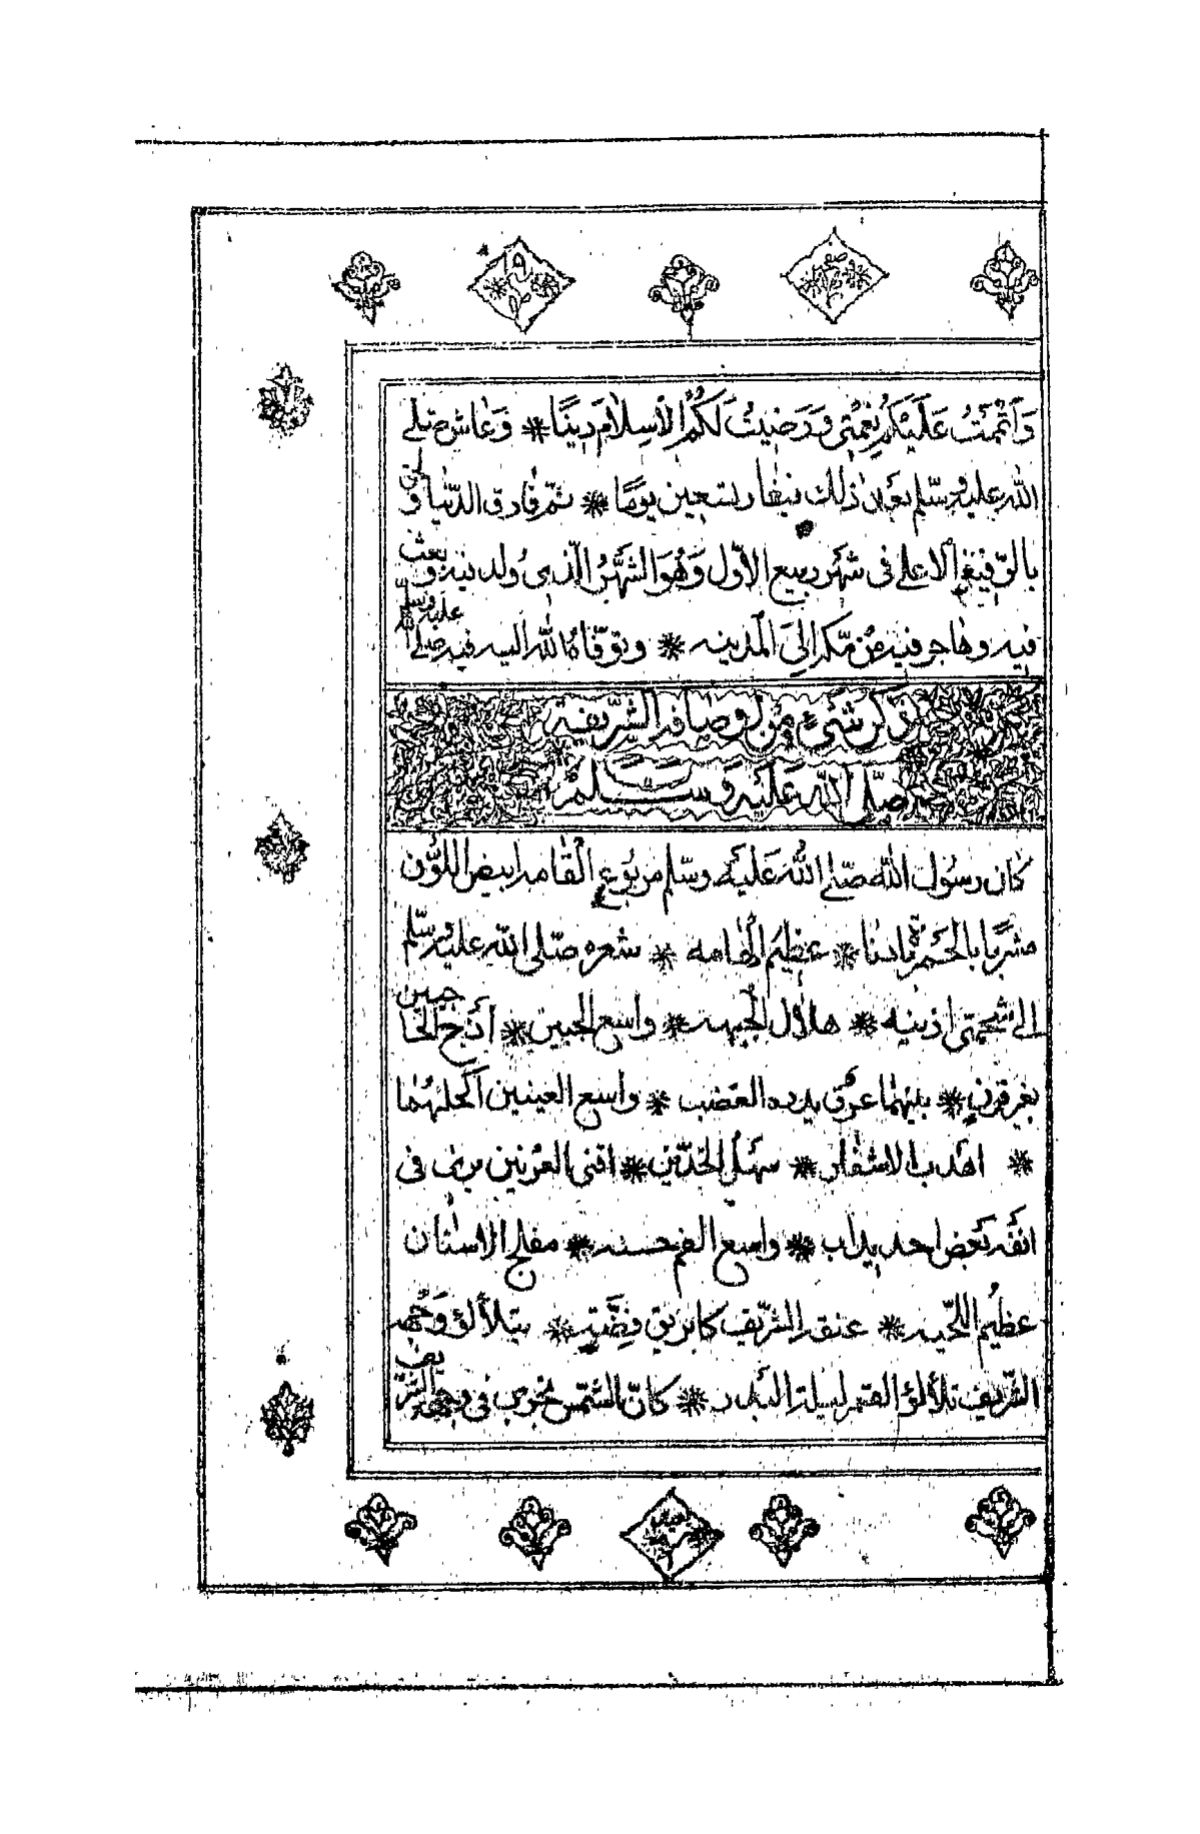 وَأَتْمَمْتُ عَلَيْكُمْ نِعْمَتِي وَرَضِيتُ لَكُمُ الْأِسْلَامَ دِينًا * وَعَاش صلى
الله عليه وسلم بعد ذلك نيفا وتسعين يومًا * ثم فارق الدنيا ولحق
بالرفيق الاعلى فى شهر ربيع الأول وهو الشهر الذى ولد فيه وبعث
فيه وهاجر فيه من مكه الى المدينه * وتوفاه الله اليه فيه صلى الله عليه وسلم
ذكر شئ من اوصافه الشريفة
صلى الله عليه وسلم
كان رسول الله صلى الله عليه وسلم مربوع القامه ابيض اللون
مشربا بالحمرة * عظيم الهامه * شعره صلى الله عليه وسلم
الى شحمتى اذنيه * هلال الجبهه * واسع الجبين * أزج الحاجبين
بغير قرن * بينهما عرق يدره الغضب * واسع العينين اكحلهما
* اهدب الاشفار * سهل الخدين * اقنى العرنين يرى فى
انفه بعض احديداب * واسع الفم حسنه * مفلج الاسنان
عظيم اللحيه * عنقه الشريف كابريق فضة * يتلألؤ وجهه
الشريف تلألؤ القمر ليلة البدر * كان الشمس تجرى فى وجهه الشريف